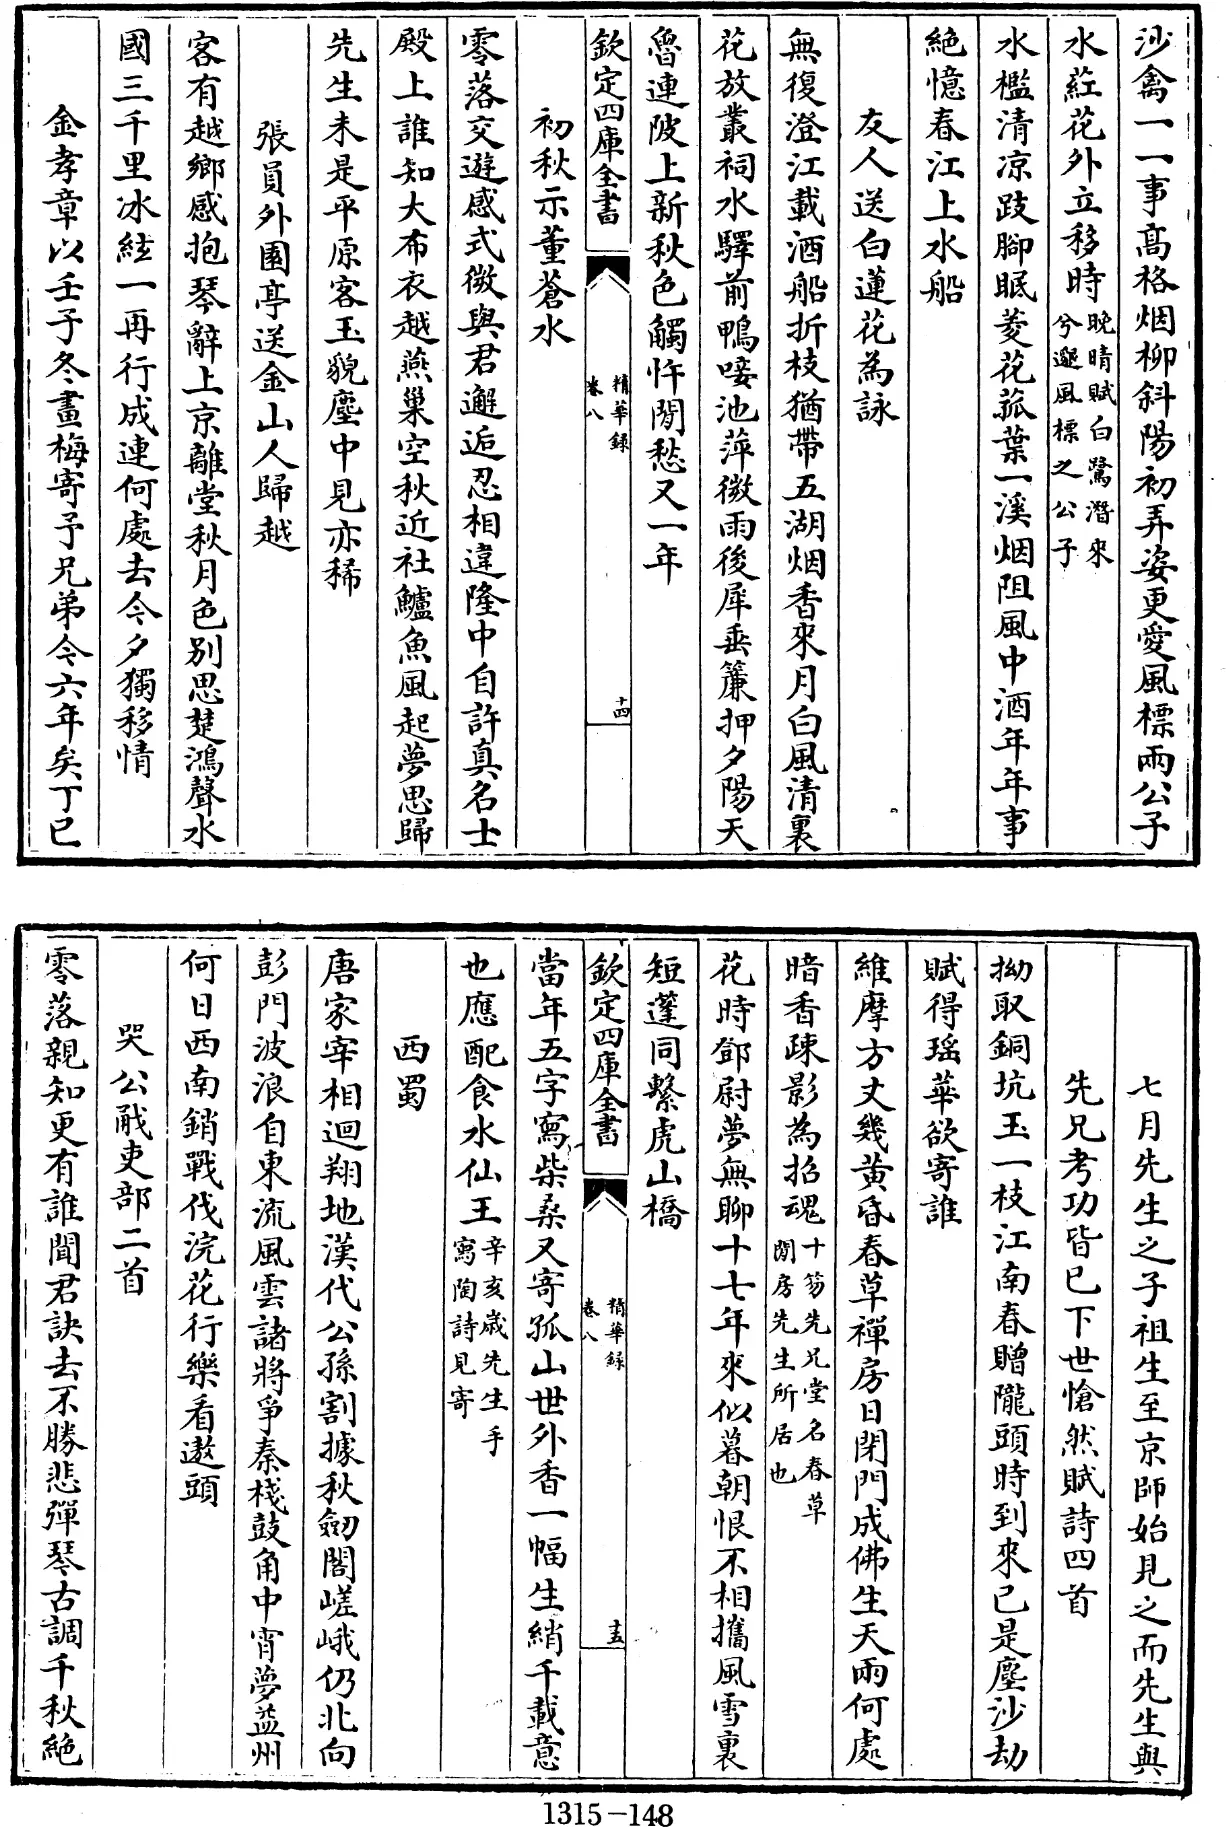 沙禽一一事髙格烟栁斜陽初弄姿更愛風標兩公子
水葒花外立移時晚晴賦白鷺潛來
兮邈風標之公子
水檻清凉跂腳眠菱花菰葉一溪烟阻風中酒年年事
絶憶春江上水船
友人送白蓮花為詠
無復澄江載酒船折枝猶帶五湖烟香來月白風清裏
花放叢祠水驛前鴨唼池萍微雨後犀垂簾押夕陽天
魯連陂上新秋色觸忤閒愁又一年
欽定四庫全書
精華録
卷八
十四
初秋示董蒼水
零落交遊感式微與君邂逅忍相違隆中自許真名士
殿上誰知大布衣越燕巢空秋近社鱸魚風起夢思歸
先生未是平原客玉貌塵中見亦稀
張員外園亭送金山人歸越
客有越鄉感抱琴辭上京離堂秋月色别思楚鴻聲水
國三千里冰絃一再行成連何處去今夕獨移情
金孝章以壬子冬畫梅寄予兄弟今六年矣丁巳
七月先生之子祖生至京師始見之而先生與
先兄考功皆已下世愴然賦詩四首
拗取銅坑玉一枝江南春贈隴頭時到來已是塵沙劫
賦得瑶華欲寄誰
維摩方丈幾黄昏春草禪房日閉門成佛生天兩何處
暗香疎影為招魂十笏先兄堂名春草
閒房先生所居也
花時鄧尉夢無聊十七年來似暮朝恨不相攜風雪裏
短蓬同繫虎山橋
欽定四庫全書
精華録
卷八
十五
當年五字寫柴桑又寄孤山世外香一幅生綃千載意
也應配食水仙王辛亥歲先生手
寫陶詩見寄
西蜀
唐家宰相迴翔地漢代公孫割據秋劒閣嵯峨仍北向
彭門波浪自東流風雲諸將爭秦棧鼓角中宵夢益州
何日西南銷戰伐浣花行樂看遨頭
哭公㦷吏部二首
零落親知更有誰聞君訣去不勝悲彈琴古調千秋絶
1315-148